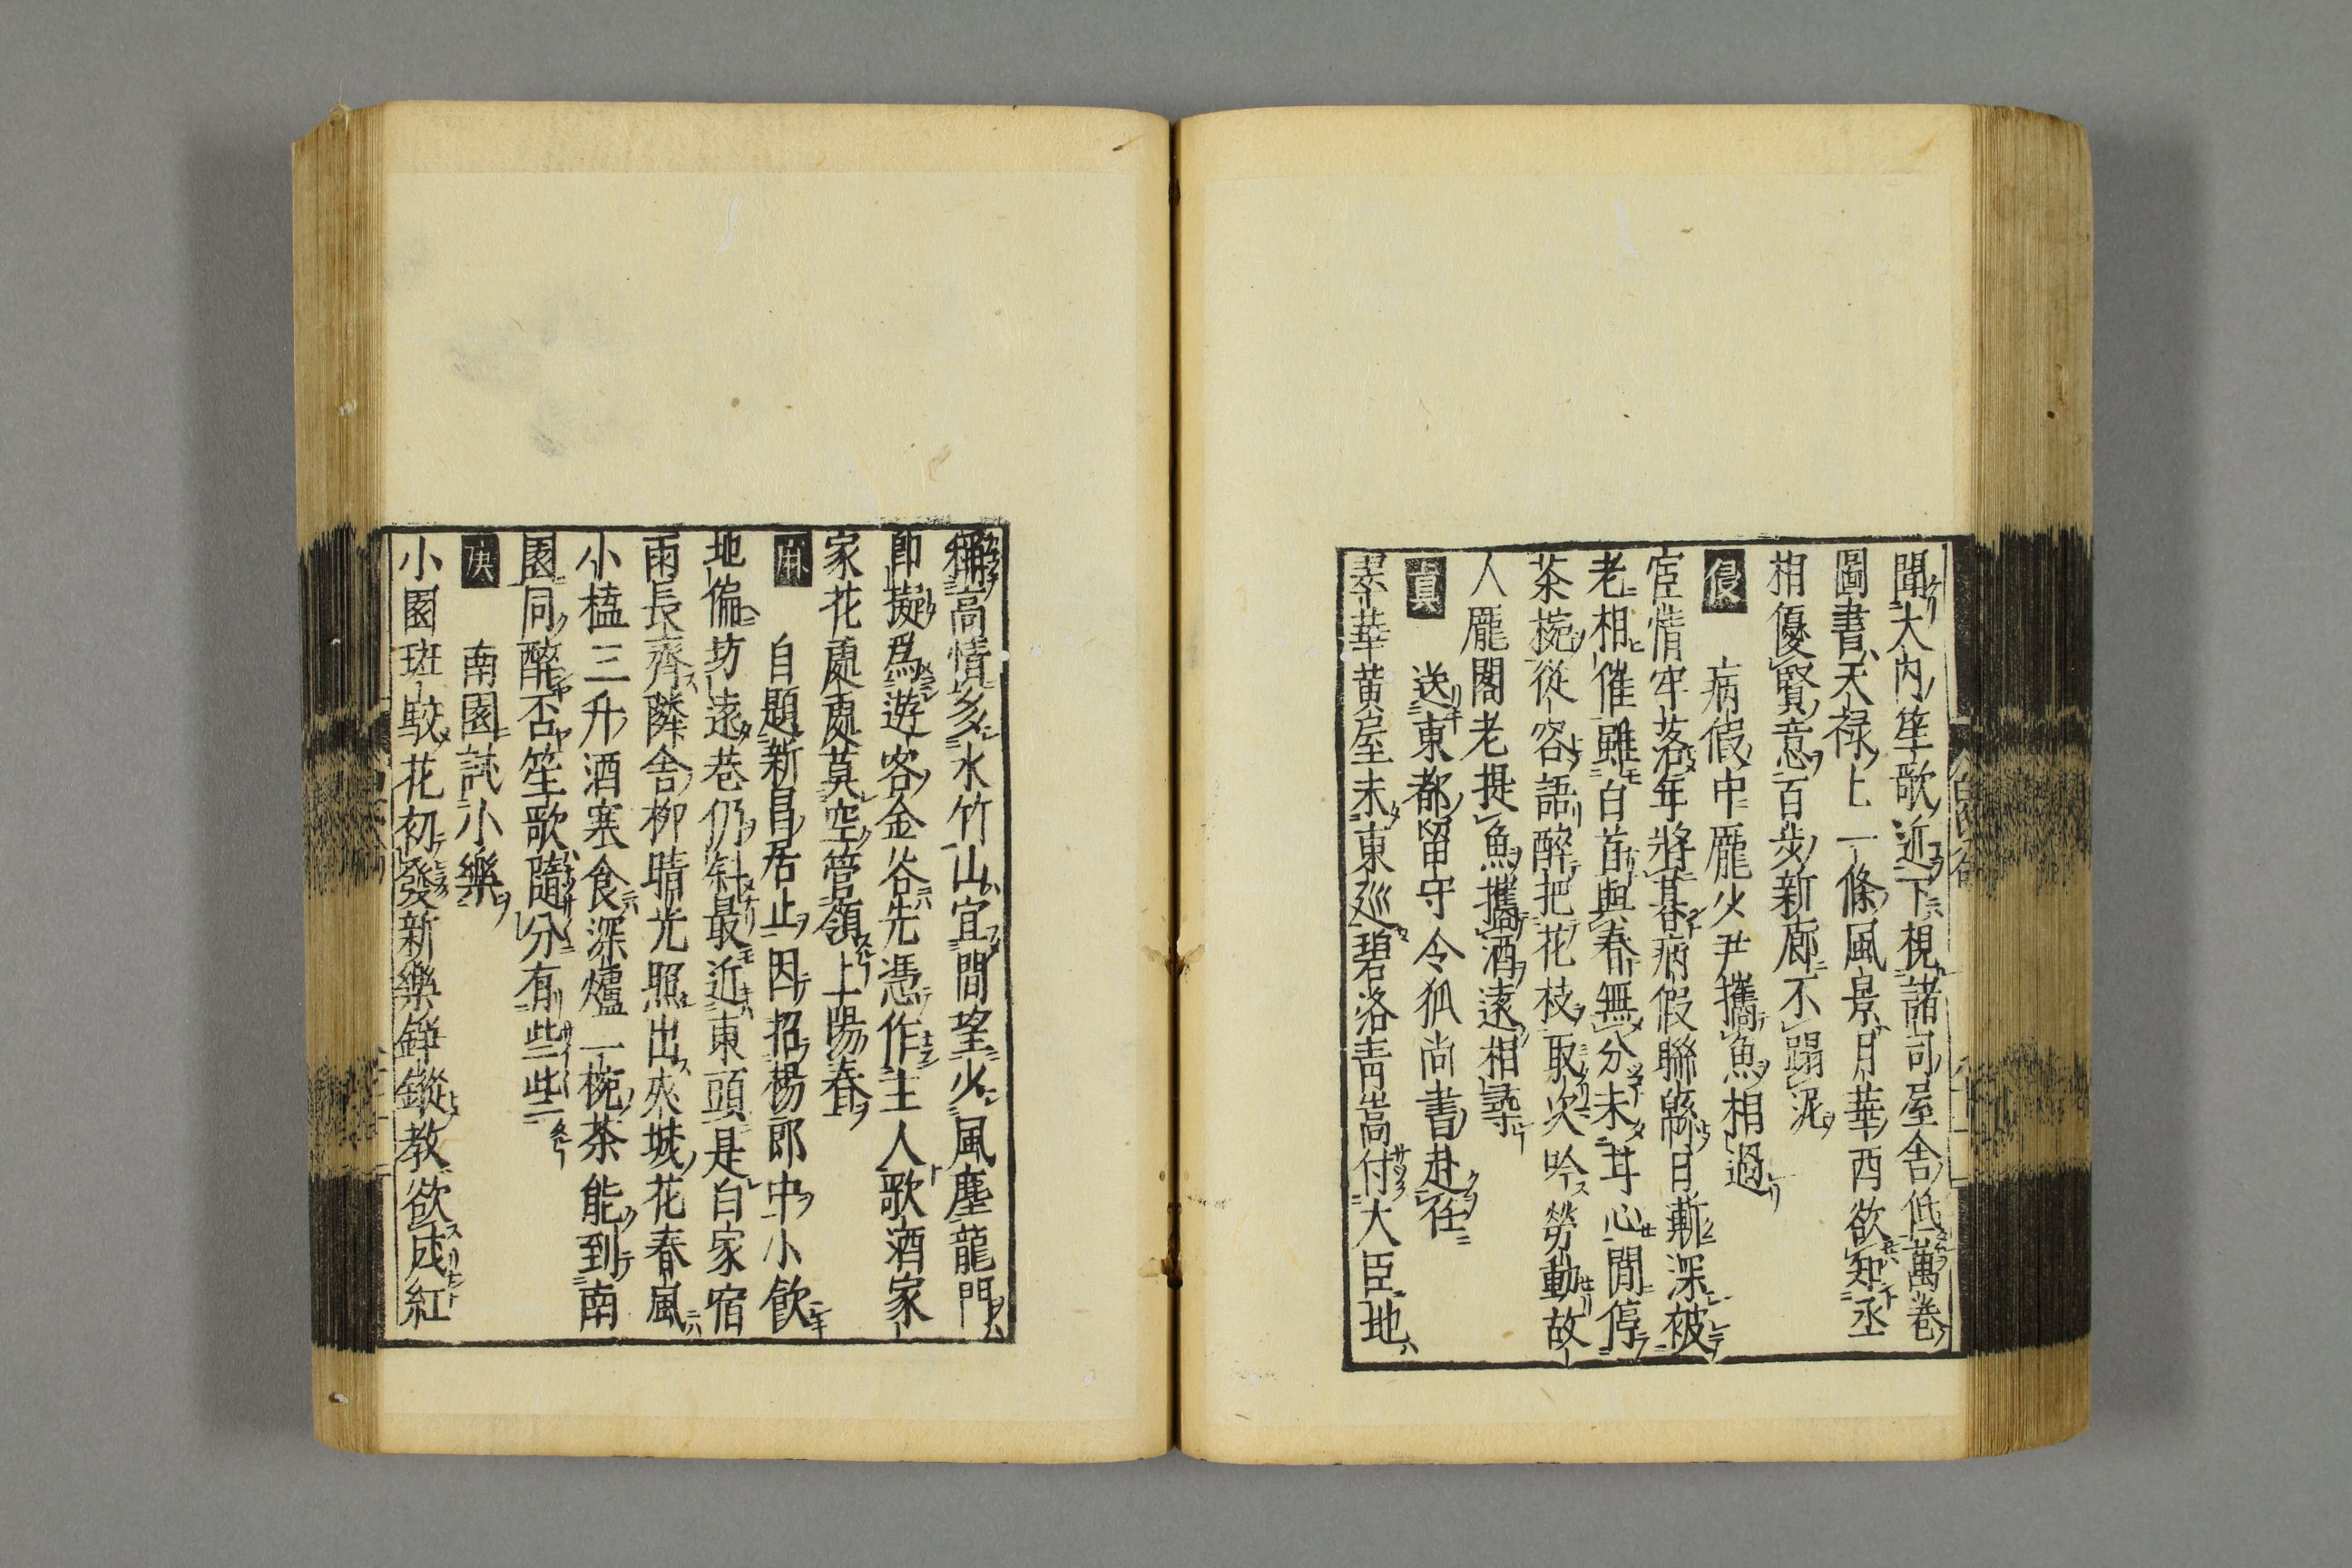 聞大内笙歌近下視諸司屋舍低萬卷
圖書天禄上一條風景月華西欲知丞
相優賢意百步新廊不蹋泥
侵 病假中龐少尹攜魚相過
宦情牢落年將暮病假聯緜日漸深被
老相催雖白首與春無分未甘心閒停
茶椀從容語醉把花枝取次吟勞動故
人龐閣老提魚攜酒遠相尋
真 送東都留守令狐尚書赴任
翠華黄屋未東巡碧洛青嵩付大臣地
稱高情多水竹山宜間望少風塵龍門
即擬爲遊客金谷先憑作主人歌酒家
家花處處莫空管領上陽春
麻 自題新昌居止因招楊郎中小飲
地偏坊遠巷仍斜最近東頭是白家宿
雨長齊隣舍柳晴光照出夾城花春風
小榼三升酒寒食深爐一椀茶能到南
園同醉否笙歌隨分有些些
庚 南園試小樂
小園班駮花初發新樂錚鏦教欲成紅